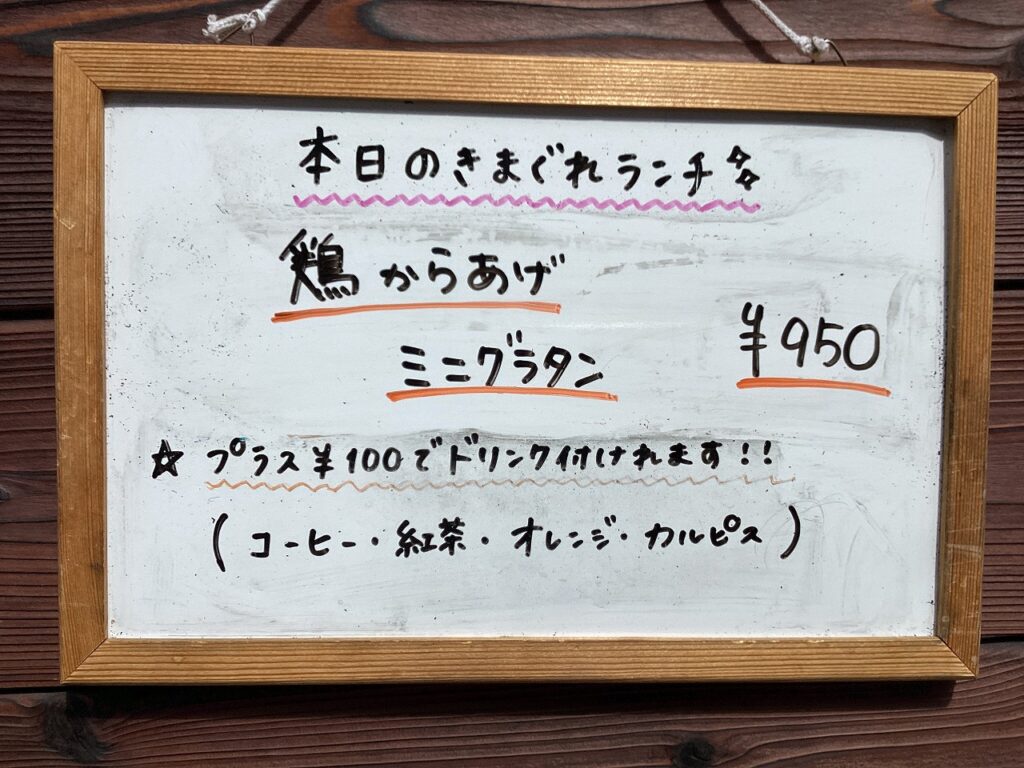 本日のきまぐれランチ
鶏からあげ
ミニグラタン
¥950
☆ プラス¥100でドリンク付けれます!!
(コーヒー・紅茶・オレンジ・カルピス)